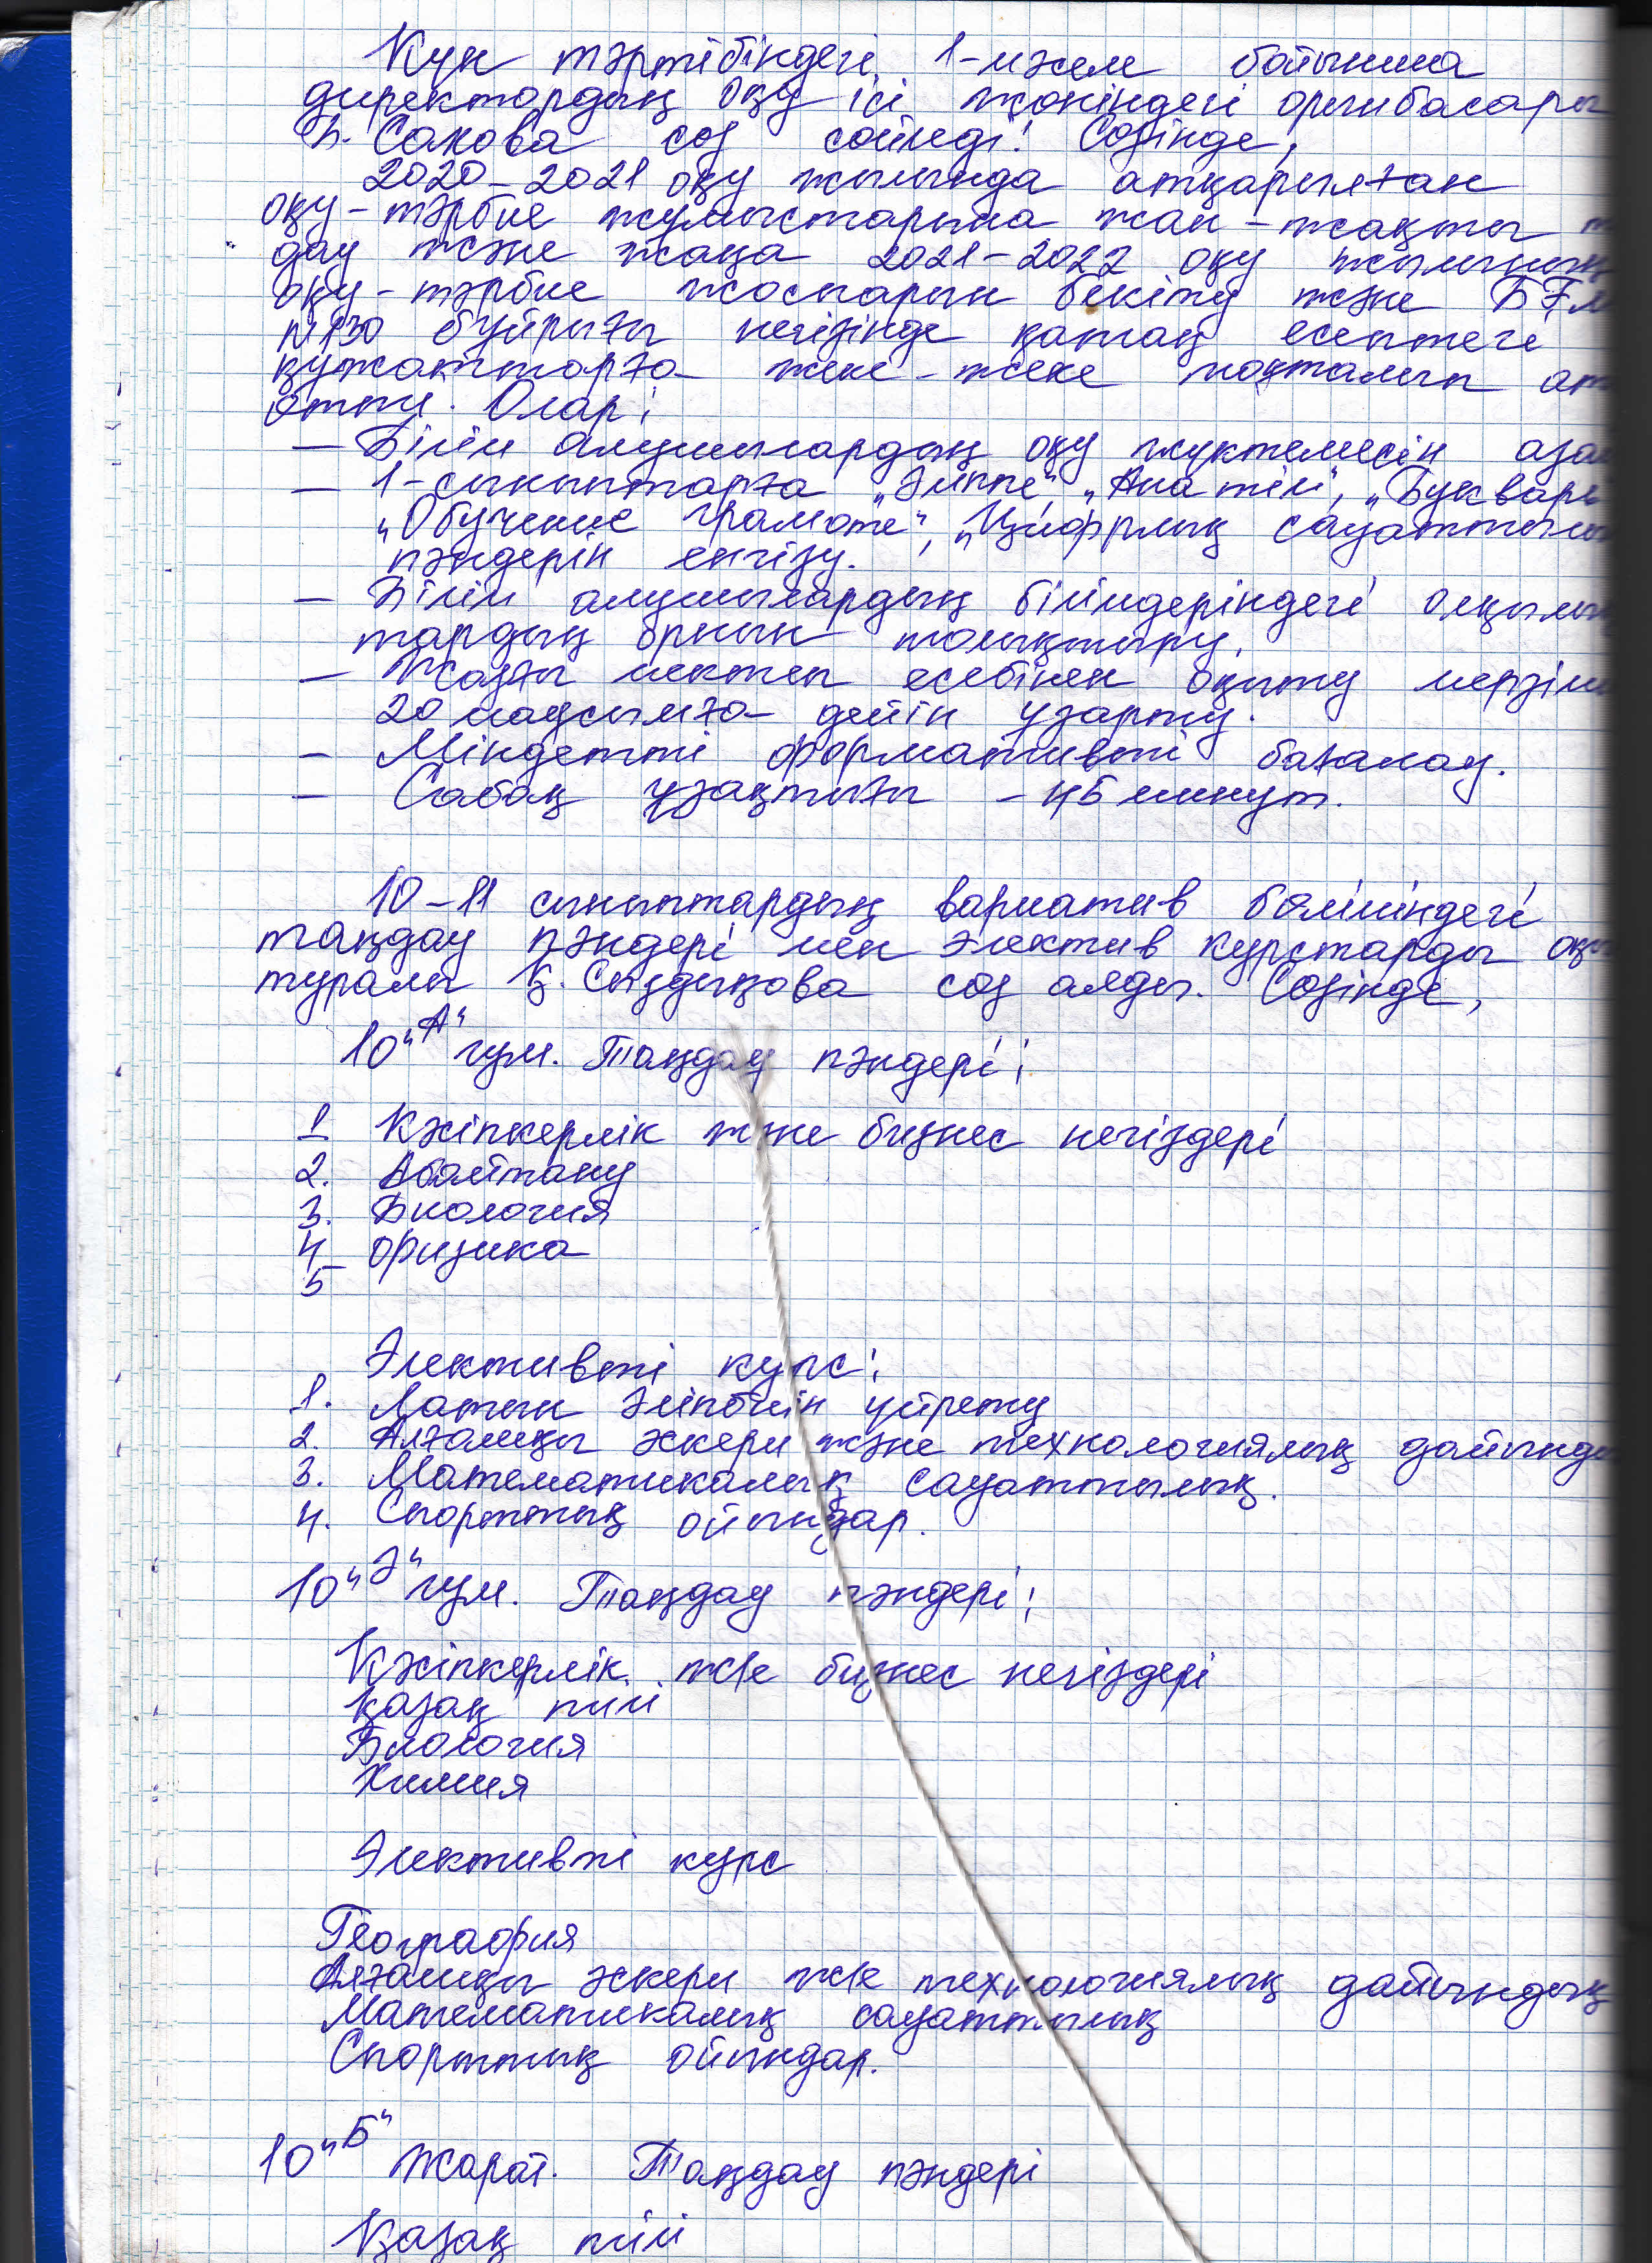 Күн тәртібіндегі 1-мәселе бойынша
директордың оқу ісі жөніндегі орынбасары
Б. Сакова сөз сөйледі. Сөзінде,
2020-2021 оқу жылында атқарылған
оқу-тәрбие жұмыстарына жан-жақты
дау және жаңа 2021-2022 оқу жылының
оқу-тәрбие жоспарын бекіту және БҒМ
№130 бұйрығы негізінде қатаң есептегі
құжаттарға жеке-жеке тоқталып
өтті. Олар:
— Білім алушылардың оқу жүктемесін
— 1-сыныптарға „Әліппе", „Ана тілі", „Букварь
„Обучение грамоте", „Цифрлық сауаттылы
пәндерін енгізу.
— Білім алушылардың біліміндеріндегі олқылық
тардың орнын толықтыру.
— Жазғы мектеп есебінен оқыту мерзімі
20 маусымға дейін ұзарту.
— Міндетті формативті бағалау.
— Сабақ ұзақтығы - 45 минут.
10-11 сыныптардың вариатив бөліміндегі
таңдау пәндері мен электив курстарды
туралы Қ. Сыздықова сөз алды. Сөзінде,
10 „А" гум. Таңдау пәндері:
1 Кәсіпкерлік және бизнес негіздері
2. Абайтану
3. Биология
4 физика
5
Элективті курс:
1. Латын әліпбиін үйрету
2. Алғашқы әскери және технологиялық дайынды
3. Математикалық сауаттылық.
4. Спорттық ойындар.
10 „Ә" гум. Таңдау пәндері:
Кәсіпкерлік ж/е бизнес негіздері
Қазақ тілі
Биология
Химия
Элективті курс
География
Алғашқы әскери ж/е технологиялық дайындық
Математикалық сауаттылық
Спорттық ойындар.
10 „Б" Жарат. Таңдау пәндері
Қазақ тілі